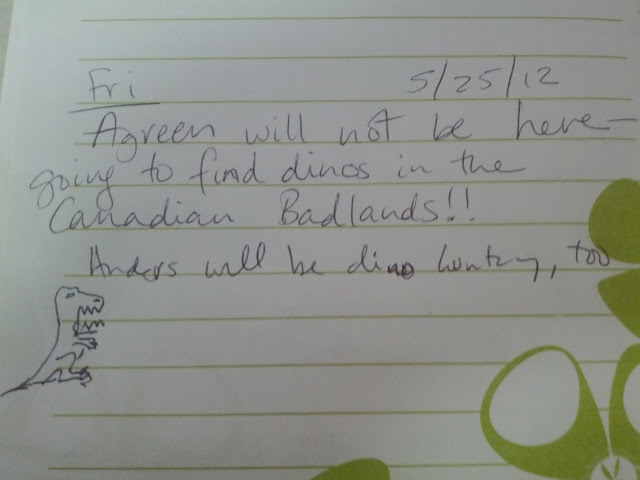 Fri 5/25/12
Agreen will not be here—
going to find dinos in the
Canadian Badlands!!
Anders will be dino hunting, too